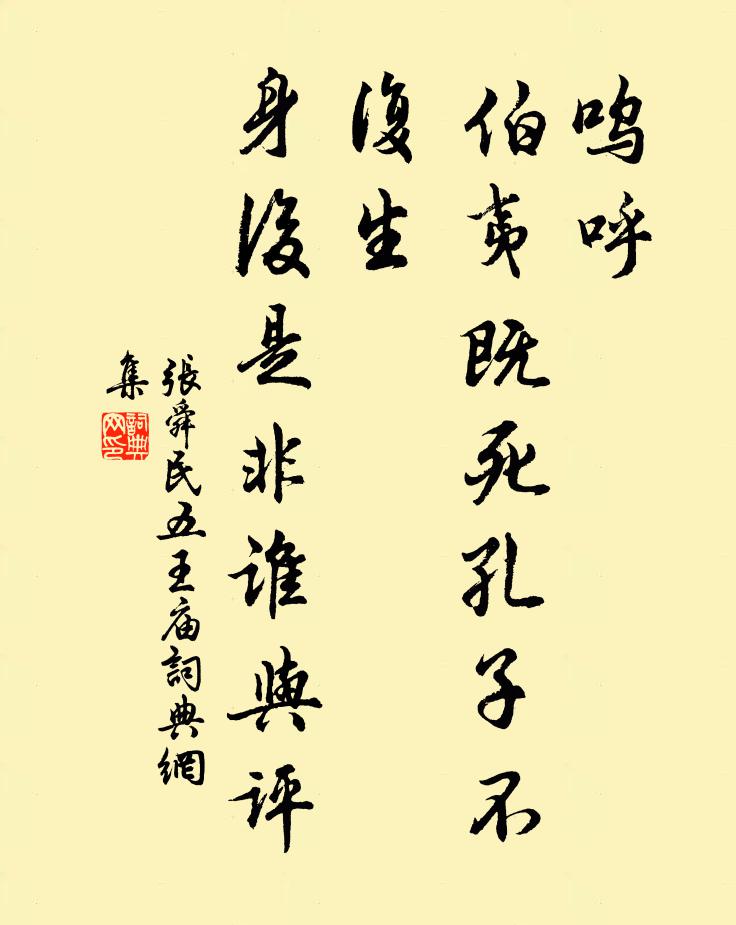 呜呼
伯夷既死孔子不
復生
身後是非誰與評
張舜民五王庙詞典網
集
詞典
网印